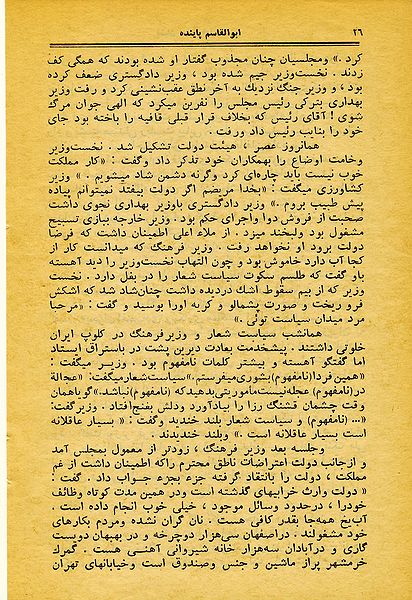 ۲۶ ابوالقاسم پاینده
کرد .» ومجلسیان چنان مجذوب گفتار او شده بودند که همگی کف
زدند . نخست‌وزیر جیم شده بود ، وزیر دادگستری ضعف کرده
بود ، و وزیر جنگ نزدیك به آخر نطق عقب‌نشینی کرد و رفت وزیر
بهداری بترکی رئیس مجلس را نفرین میکرد که الهی جوان مرگ
شوی ! آقای رئیس که بخلاف قرار قبلی قافیه را باخته بود جای
خود را بنایب رئیس داد ورفت .
همانروز عصر ، هیئت دولت تشکیل شد . نخست‌وزیر
وخامت اوضاع را بهمکاران خود تذکر داد وگفت : «کار مملکت
خوب نیست باید چاره‌ای کرد وگرنه دشمن شاد میشویم . » وزیر
کشاورزی میگفت : «بخدا مریضم اگر دولت بیفتد نمیتوانم پیاده
پیش طبیب بروم .» وزیر دادگستری باوزیر بهداری نجوی داشت
صحبت از فروش دوا واجرای حکم بود . وزیر خارجه بازی تسبیح
مشغول بود ولبخند میزد . از ملاء اعلی اطمینان داشت که فرضا
دولت برود او نخواهد رفت . وزیر فرهنگ که میدانست کار از
کجا آب دارد خاموش بود و چون التهاب نخست‌وزیر را دید آهسته
باو گفت که طلسم سکوت سیاست شعار را در بغل دارد . نخست
وزیر که از بیم سقوط اشك دردیده داشت چنان‌شاد شد که اشکش
فرو ریخت و صورت پشمالو و کریه اورا بوسید و گفت : «مرحبا
مرد میدان سیاست توئی .»
همانشب سیاست شعار و وزیرفرهنگ در کلوپ ایران
خلوتی داشتند . پیشخدمت بعادت دیرین پشت در باستراق ایستاد
اما گفتگو آهسته و بیشتر کلمات نامفهوم بود . وزیر میگفت :
«همین‌فردا(نامفهوم)بشوری‌میفرستم.»سیاست‌شعارمیگفت: «عجالة
در(نامفهوم) عجله‌نیست‌ماموریتی‌بدهید‌که(نامفهوم)نباشد.»گویاهمان
وقت چشمان قشنگ رزا را بیادآورد ودلش بغنج‌افتاد . وزیرگفت:
«... (نامفهوم) و سیاست شعار بلند خندید وگفت : « بسیار عاقلانه
است بسیار عاقلانه است .» وبلند خندیدند .
وجلسه بعد وزیر فرهنگ ، زودتر از معمول بمجلس آمد
و ازجانب دولت اعتراضات ناطق محترم راکه اطمینان داشت از غم
مملکت ، دولت را بانتقاد گرفته جزء بجزء جواب داد . گفت :
« دولت وارث خرابیهای گذشته است ودر همین مدت کوتاه وظائف
خودرا ، درحدود وسائل موجود ، خیلی خوب انجام داده است .
آب‌یخ همه‌جا بقدر کافی هست . نان گران نشده ومردم بکارهای
خود مشغولند . دراصفهان سی‌هزار دوچرخه و در بهبهان دویست
گاری و درآبادان سه‌هزار خانه شیروانی آهنی هست . گمرك
خرمشهر پراز ماشین و جنس وصندوق است وخیابانهای تهران